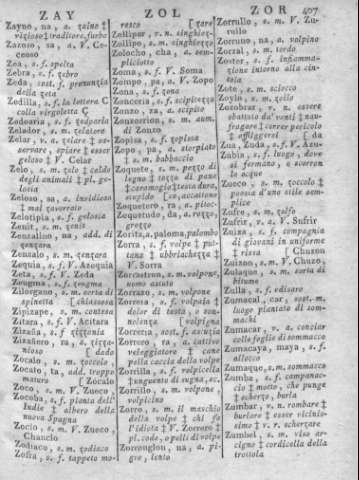 ZAY ZOL ZOR 407
Zayno, na, a. zaino ‡
vizioso ‡ traditore, furbo
Zazoso, sa, a. V. Ce-
ceoso
Zea, s. f. spelta
Zebra, s. f. zebro
Zeda, sost. f. pronunzia
della zeta
Zedilla, s. f. la lettera C
colla virgoletta Ç
Zedoaria, s. f. zedoaria
Zelador, s. m. zelatore
Zelar, v. a. zelare ‡ os-
servare, spiare ‡ esser
geloso ‡ V. Celar
Zelo, s. m. zelo ‡ celo
degli animali ‡ pl. ge-
losia
Zeloso, sa, a. invidioso
‡ mal governato
Zelotipia, s. f. gelosia
Zenit, s. m. zenit
Zenzallino, na, add. di
zenzara
Zenzalo, s. m. zenzara
Zequia, s. f. V. Azequia
Zeta, s. f. V. Zeda
Zeugma, s. f. zeugma
Zilorgano, s. m. sorta di
spinetta [chiassosa
Zipizape, s. m. contesa
Zitara, s. f. V. Acitara
Zizaña, s. f. zizzania
Zizañero, ra, a. zizza-
nioso [dado
Zocalo, s. m. zoccolo
Zocato, ta, add. troppo
maturo [Zocalo
Zoco, a. m. V. Zueco,
Zocoba, s. f. pianta dell'
Indie ‡ albero della
nuova Spagna
Zocio, s. m. V. Zueco,
Chanclo
Zodiaco, s. m. zodiaco
Zofra, s. f. tappeto mo-
resco
Zollipar, v. n. singhioz-
Zollipo, s. m. singhiozzo
Zolocho, cha, a. sem-
pliciotto
Zoma, s. f. V. Soma
Zompo, pa, a. V. Zopo
Zona, s. f. zona
Zonceria, s. f. scipitezza
Zonzo, za, a. scipito
Zonzorrion, s. m. aum.
di Zonzo
Zopisa, s. f. zoplessa
Zopo, pa, a. storpiato
‡ s. m. babbaccio
Zoquete, s. m. pezzo di
legno ‡ tozzo di pane
‡ ceromogio ‡ testa dura,
stupido [co, accattone
Zoquetero, ra, a. pitoc-
Zoquetudo, da, a. rozzo,
grezzo
Zorita, a. paloma, palombo
Zorra, s. f. volpe ‡ put-
tana ‡ ubbriachezza ‡
V. Sorra
Zorrastron, s. m. volpone,
uomo astuto
Zorrazo, s. m. volpone
Zorrera, s. f. volpaia ‡
dolor di testa, o son-
nolenza [volpigna
Zorreria, sost. f. astuzia
Zorrero, ra, a. cattivo
veleggiatore ‡ cane
pella caccia della volpe
Zorrilla, s. f. volpicella
‡ unguento di sugna, ec.
Zorrillo, s. m. volpone,
volpicino
Zorro, s. m. il maschio
della volpe ‡ chi fa
l'idiota ‡ V. Zorrero ‡
pl. code, o pelli di volpe
Zorronglon, na, a. pi-
gro, lento
Zorrullo, s. m. V. Zu-
rullo
Zorruno, na, a. volpino
Zorzal, s. m. tordo
Zoster, s. f. infiamma-
zione intorno alla cin-
tola
Zote, s. m. sciocco
Zoylo, s. m. zoilo
Zozobrar, v. n. essere
sbattuto da' venti ‡ nau-
fragare ‡ correr pericolo
‡ affliggersi [da
Zua, Zuda, s. f. V. Azu-
Zubia, s. f. luogo, dove
si fermano, o scorron
le acque
Zueco, s. m. zoccolo ‡
poesia d'uno stile sem-
plice
Zufro, s. m. zolfo
Zufrir, v. a. V. Sufrir
Zuiza, s. f. compagnia
di giovani in uniforme
‡ rissa [Chuzon
Zuizon, s. m. V. Chuzo,
Zulaque, s. m. sorta di
bitume
Zulla, s. f. edisaro
Zumacal, car, sost. m.
luogo piantato di som-
machi
Zumacar, v. a. conciar
colle foglie di sommacco
Zumacaya, maya, s. f.
allocco
Zumaque, s. m. sommacco
Zumba, s. f. campanac-
cio ‡ motto, che punge
‡ scherzo, burla
Zumbar, v. n. rombare ‡
burlare ‡ esser vicinis-
simo ‡ v. r. scherzare
Zumbel, s. m. viso ar-
cigno ‡ cordicella della
trottola